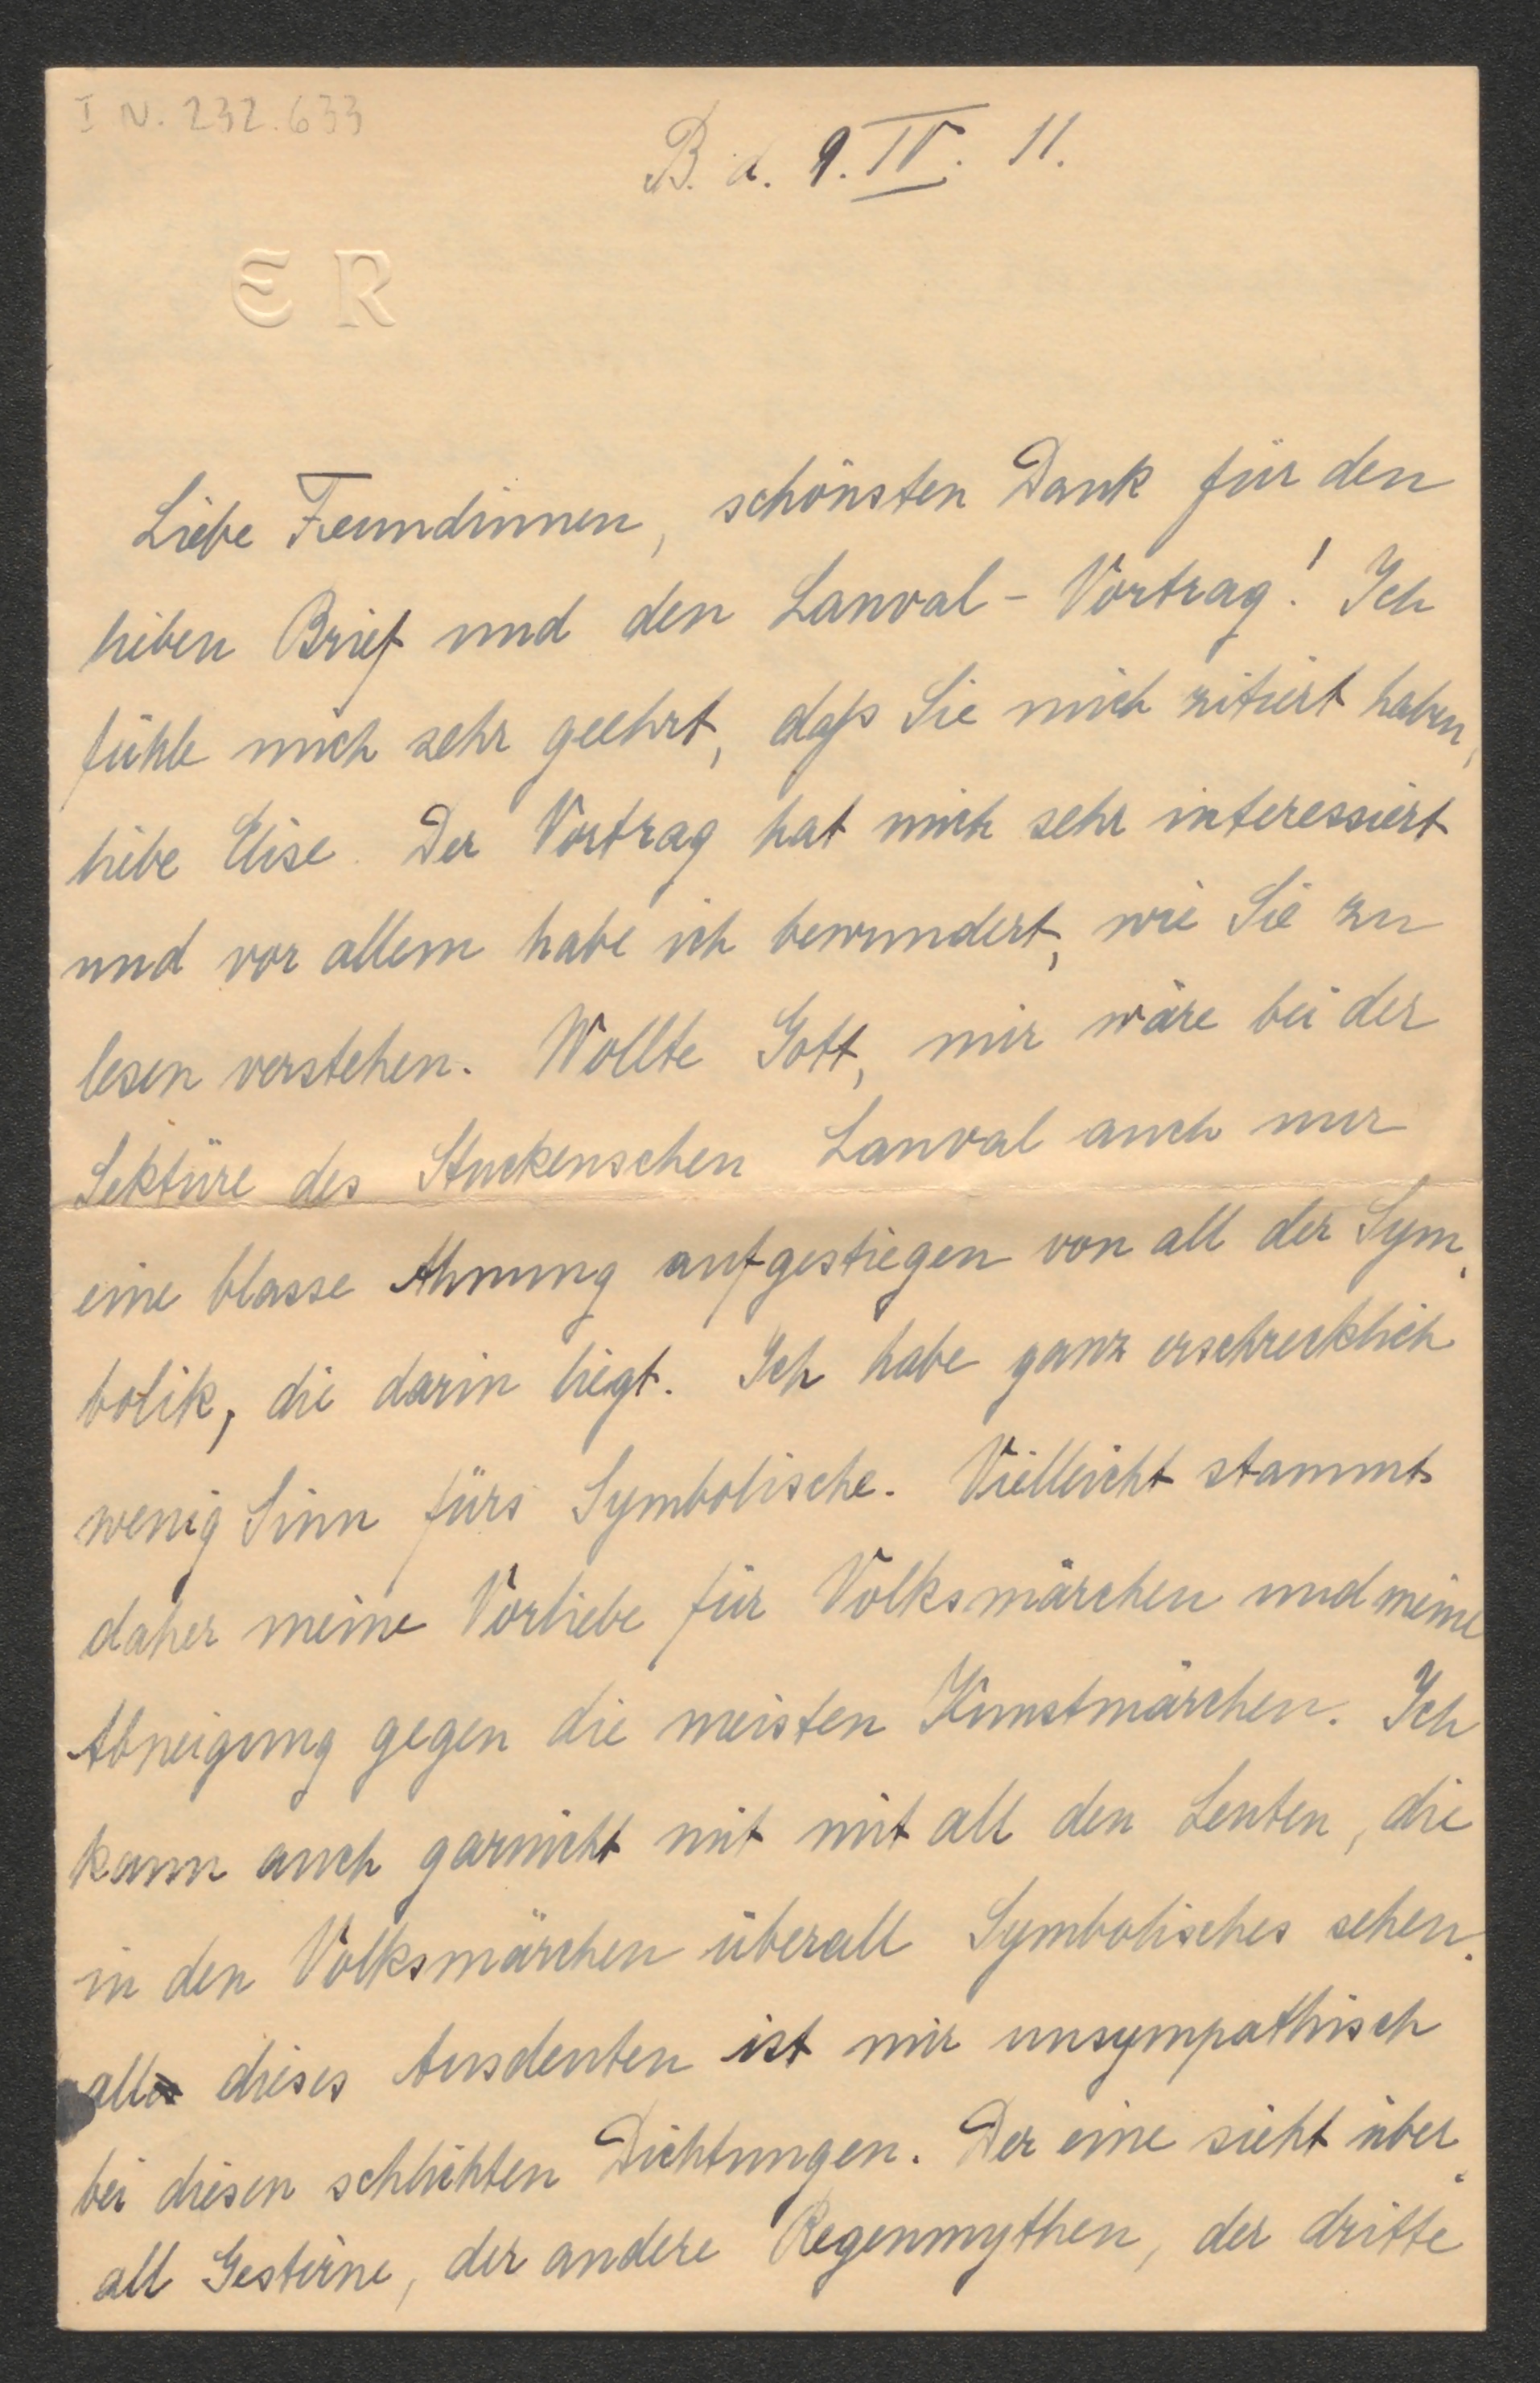 I N. 232.633
B. d. 9. IV. 11.
E R
Liebe Freundinnen, schönsten Dank für den
lieben Brief und den Lanval-Vortrag! Ich
fühle mich sehr geehrt, daß Sie mich zitiert haben,
liebe Elise. Der Vortrag hat mich sehr interessiert
und vor allem habe ich bewundert, wie Sie zu
lesen verstehen. Wollte Gott, mir wäre bei der
Lektüre des Stuckenschen Lanval auch nur
eine blasse Ahnung aufgestiegen von all der Sym-
bolik, die darin liegt. Ich habe ganz erschrecklich
wenig Sinn fürs Symbolische. Vielleicht stammt
daher meine Vorliebe für Volksmärchen und meine
Abneigung gegen die meisten Kunstmärchen. Ich
kann auch garnicht mit mit all den Leuten, die
in den Volksmärchen überall Symbolisches sehen.
all dieses Ausdeuten ist mir unsympathisch
bei diesen schlichten Dichtungen. Der eine sieht über-
all Gestirne, der andere Regenmythen, der dritte